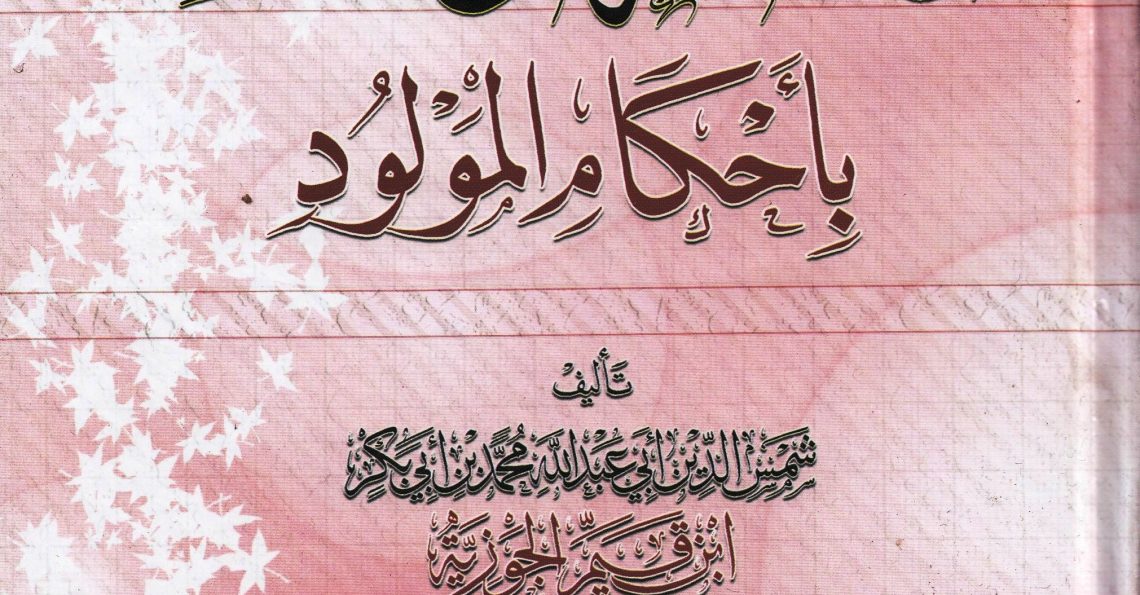 بِأَحْكَامِ الْمَوْلُودِ
تَأليف
شَمْسِ الدِّينِ أَبِي عَبْدِ اللَّهِ مُحَمَّدِ بْنِ أَبِي بَكْرٍ
ابْنِ قَيِّمِ الْجَوْزِيَّةِ